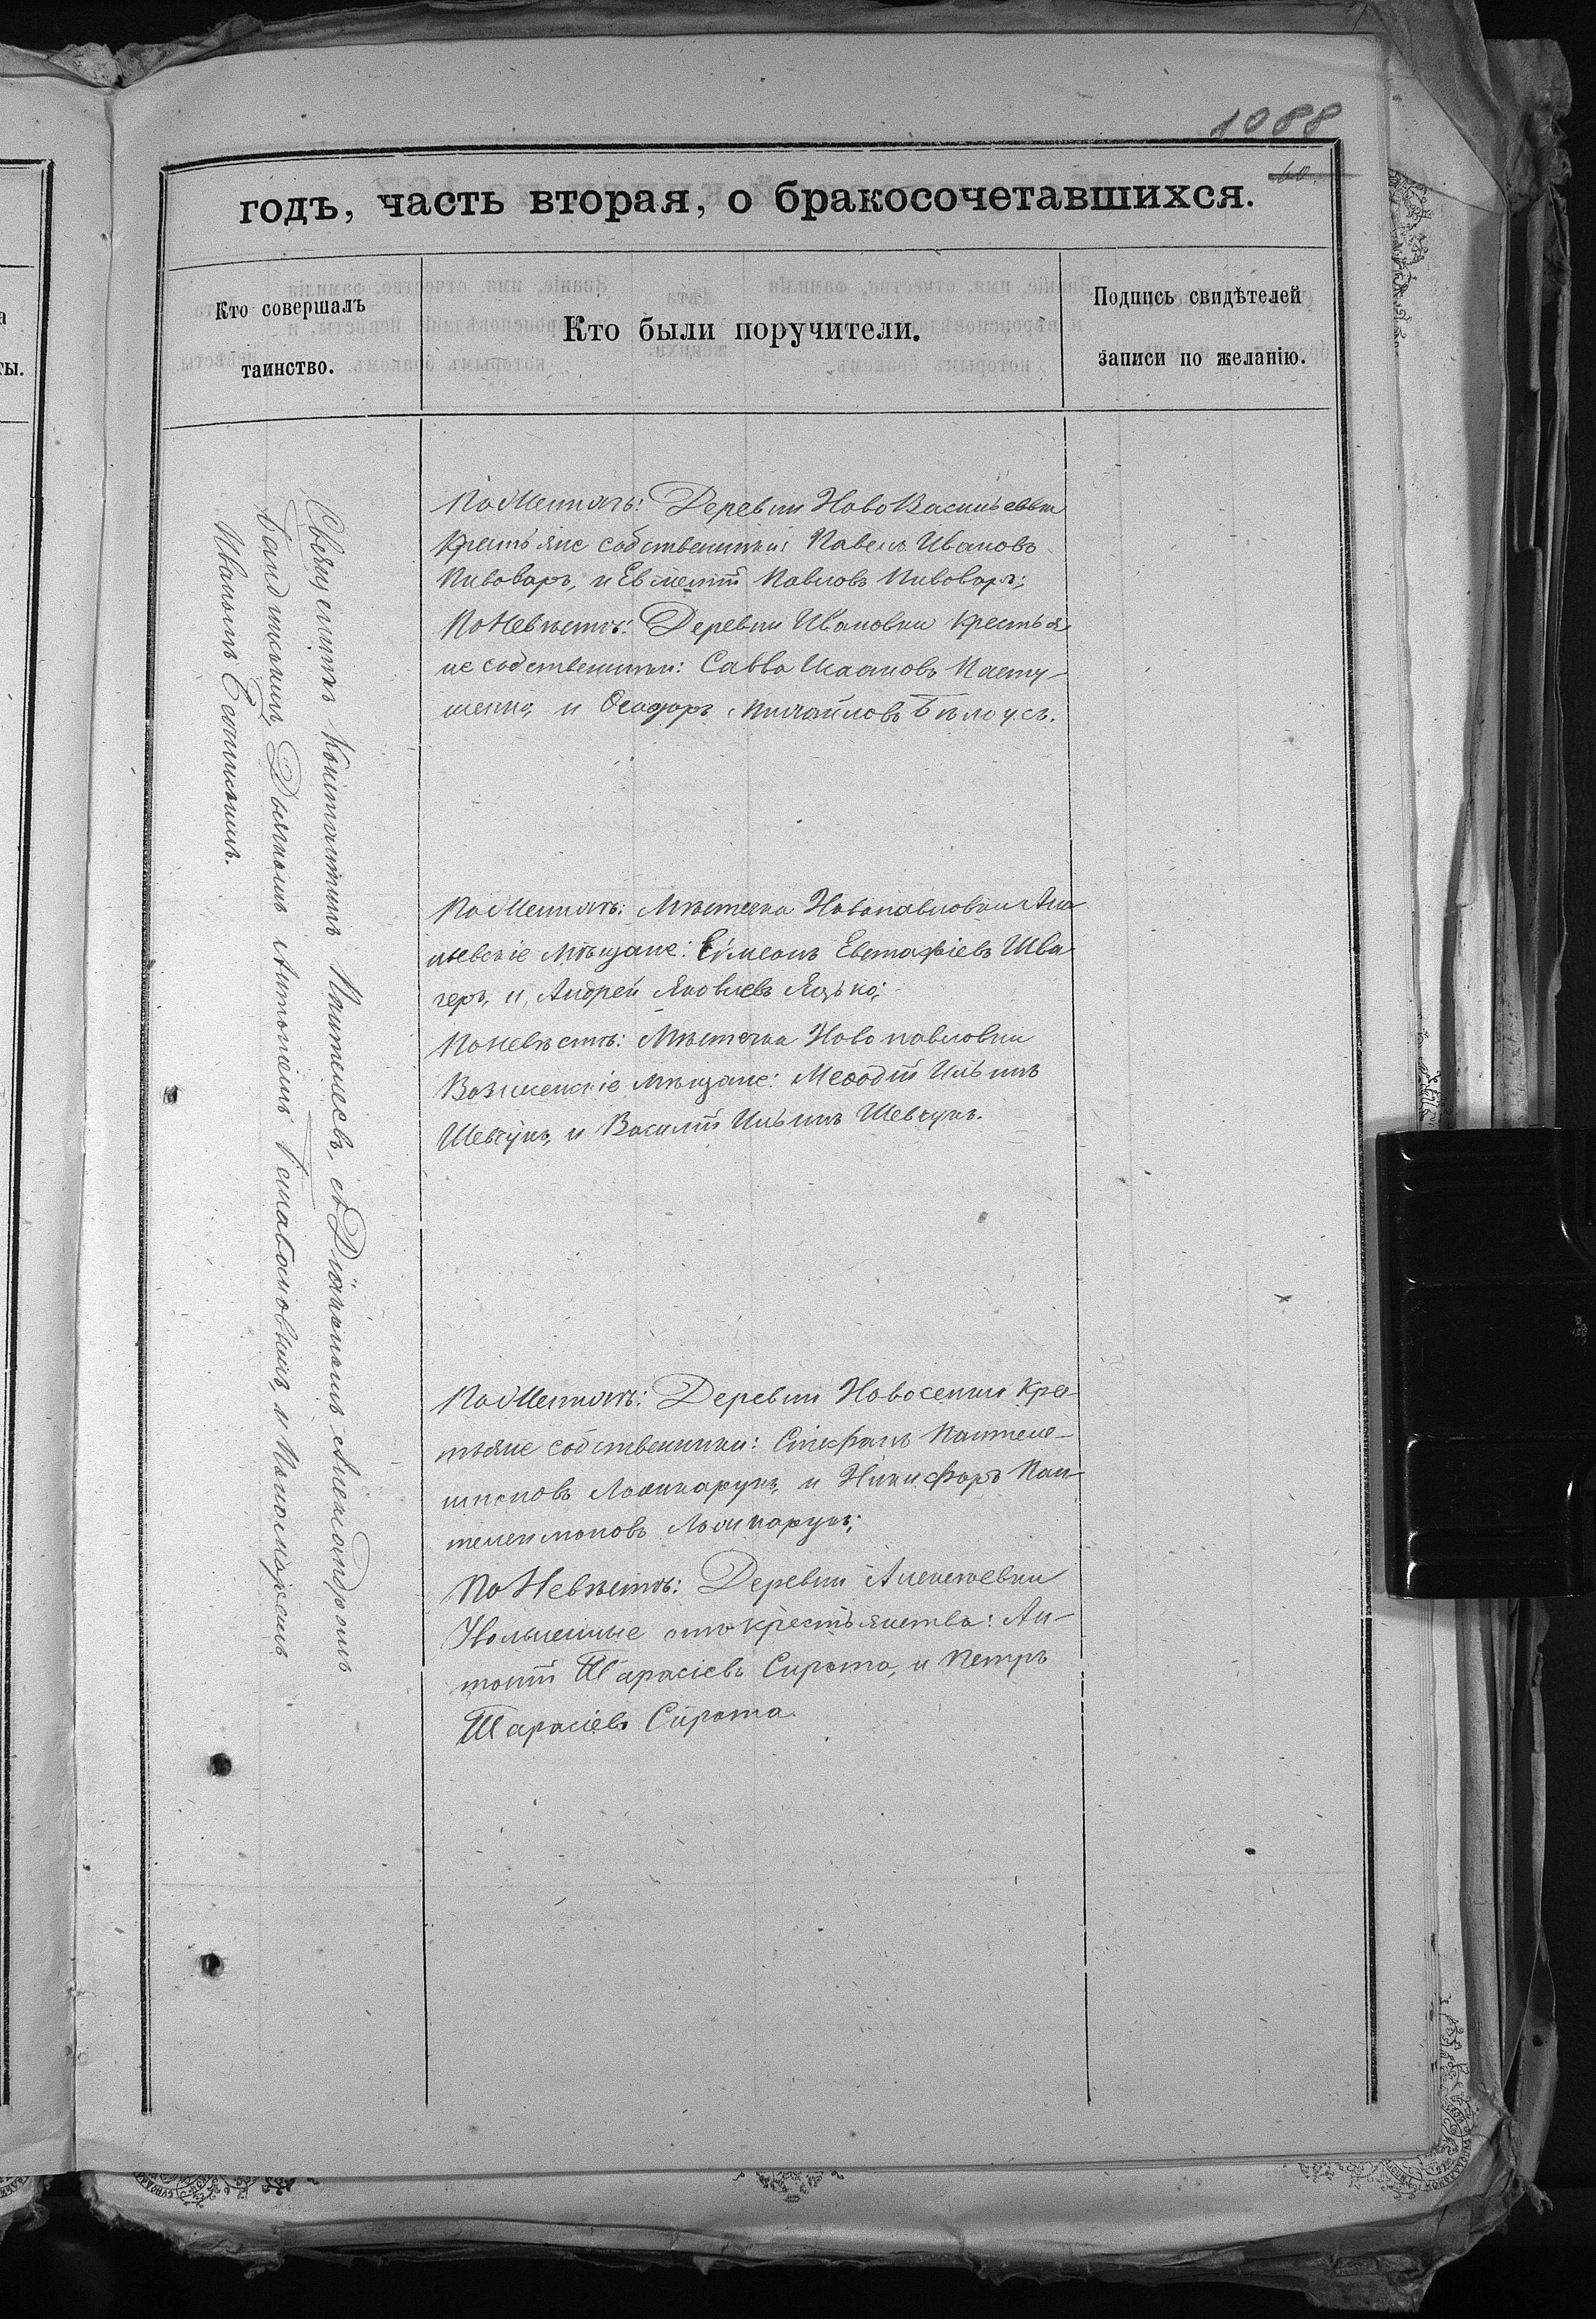 1088
60.
годъ, часть вторая, о бракосочетавшихся.
Кто совершалъ
таинство.
Кто были поручители.
Подпись свидѣтелей
записи по желанію.
ы.
Священникъ Константинъ Пантелеевъ, съ Діакономъ Александромъ
Дьячкомъ Антоніемъ и Пономаремъ
Иваномъ
По Женихѣ: Деревни НовоВасильевки
Крестьяне собственники: Павелъ Ивановъ
Пивоваръ, и Евменій Павловъ Пивоваръ;
По Невѣстѣ: Деревни Ивановки Кресть я
не собственники: Савва Исааковъ Пасту-
шенко, и Ѳеодоръ Михайловъ Бѣлоусъ.
По Женихѣ: Мѣстечка Новопавловки Ана
ньевскіе Мѣщане: Сѵмеонъ Евстафіевъ Шва
черъ, и Андрей Яковлевъ Яцько;
По невѣстѣ: Мѣстечка Новопавловки
Вознесенскіе Мѣщане: Меѳодій Ильинъ
Шевчукъ, и Василій Ильинъ Шевчукъ.
По Женихѣ: Деревни Новоселки Крес-
тьяне собственники: Стефанъ Пантеле-
имоновъ и Никифоръ Пан-
телеимоновъ
По Невѣстѣ: Деревни Алексеевки
Уволенные отъ крестьянства: Ан-
тоній Тарасіевъ Сирота, и Петръ
Тарасіевъ Сирота.